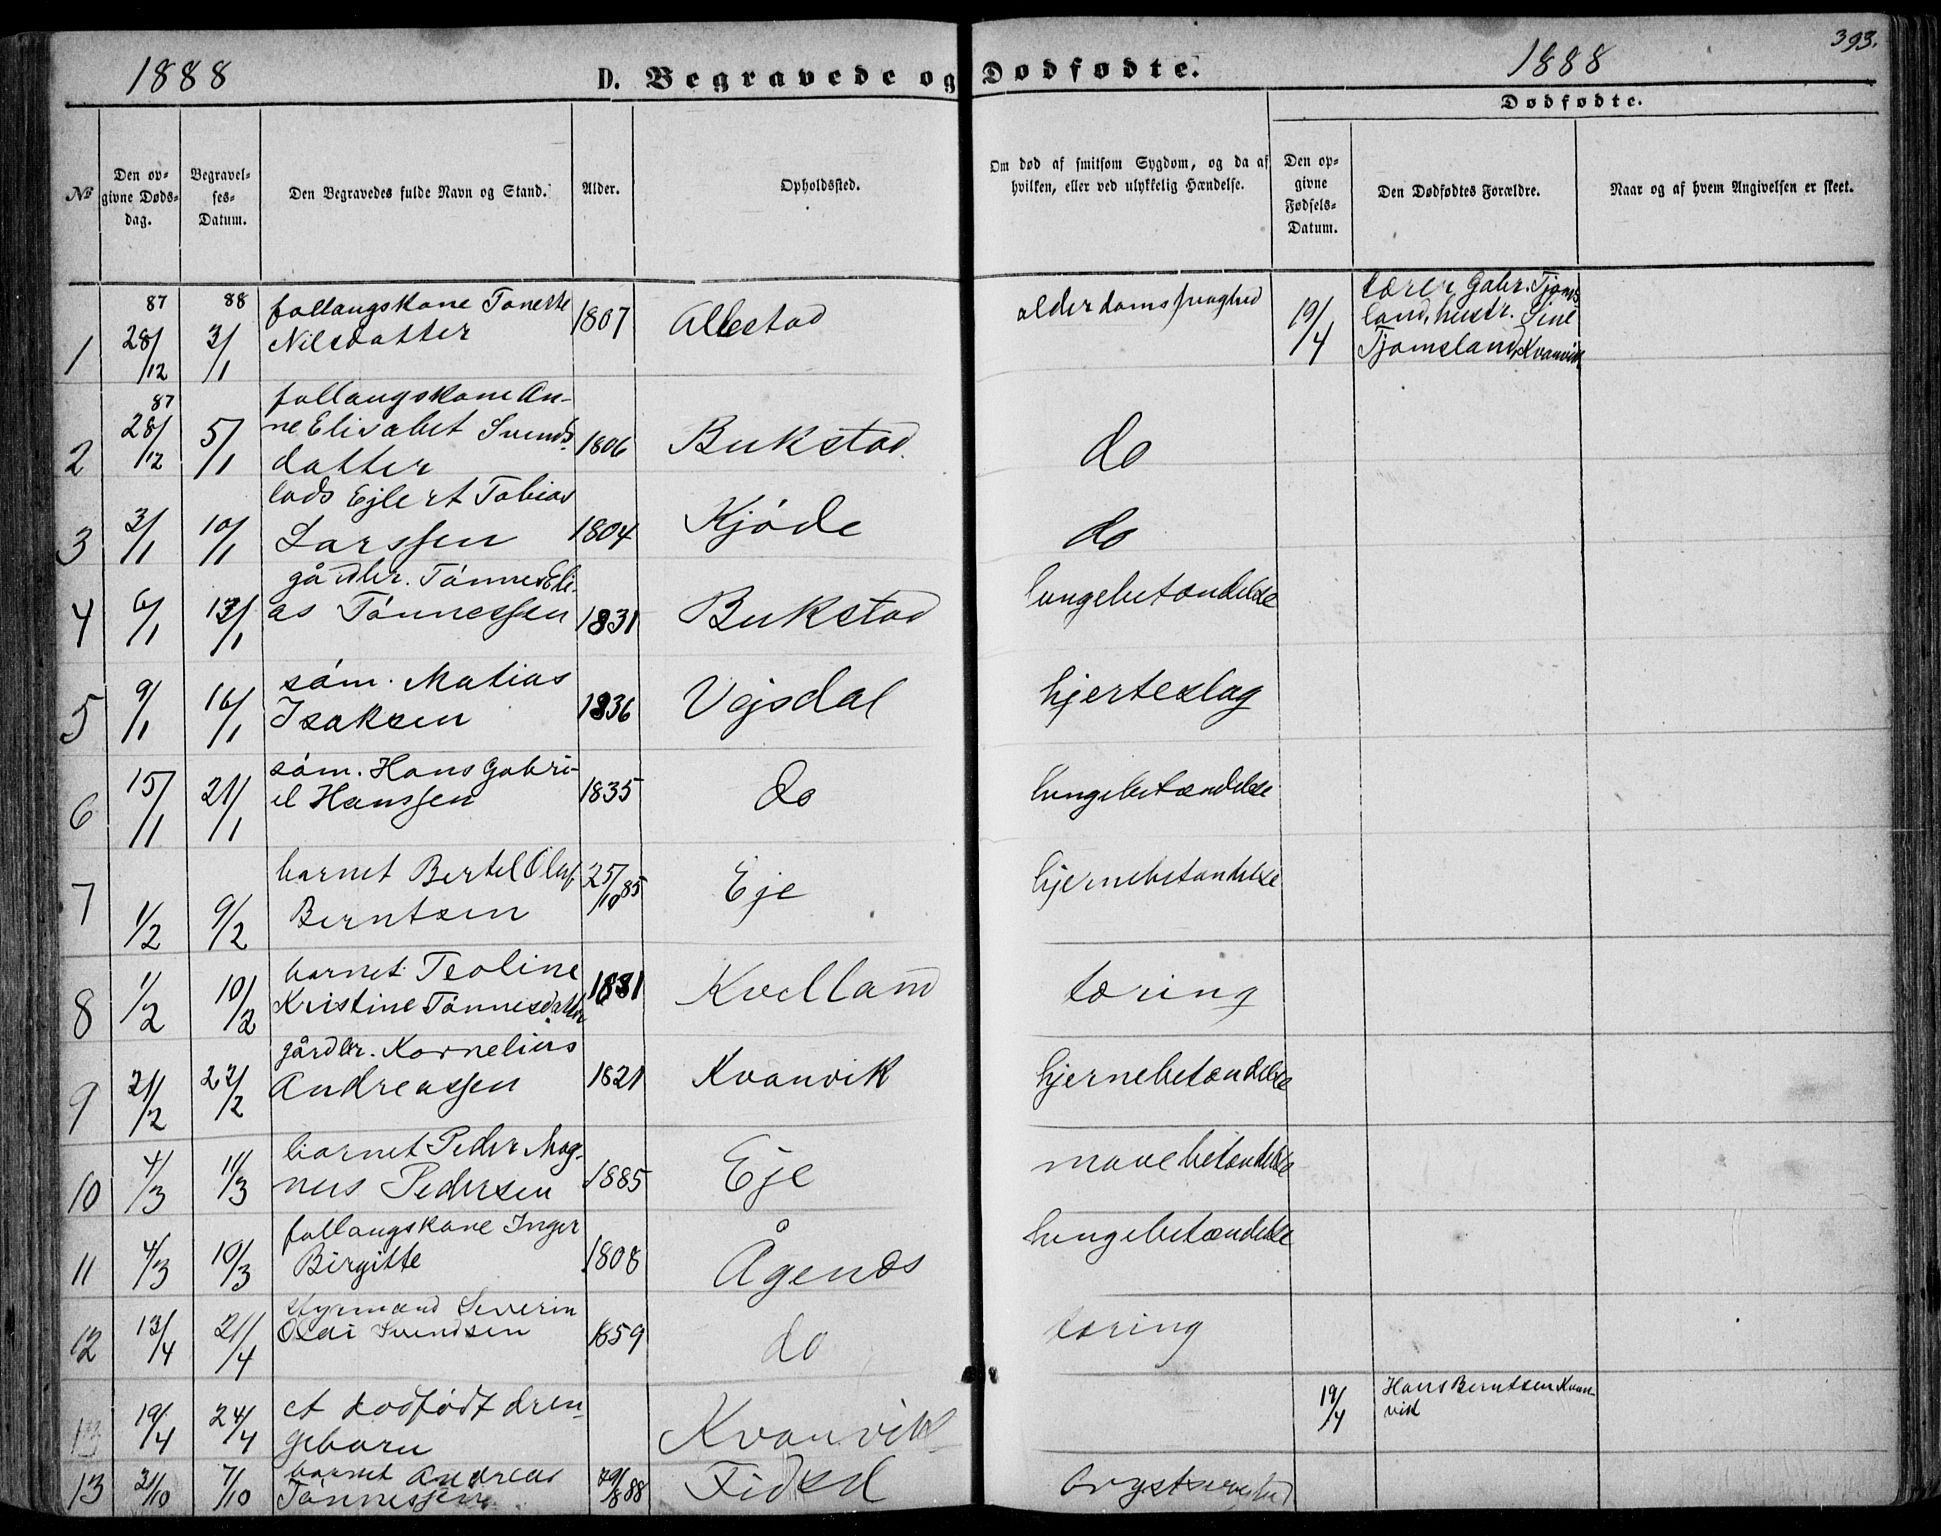 1888 D. Begravede og Dødfødte. 1888 393.
Dødfødte.
№ Den op-
givne Døds-
dag. Begravel-
ses-
Datum. Den Begravedes fulde Navn og Stand. Alder. Opholdssted. Om død af smitsom Sygdom, og da af
hvilken, eller ved ulykkelig Hændelse. Den op-
givne
Fødsels-
Datum. Den Dødfødtes Forældre. Naar og af hvem Angivelsen er skeet.
87 88 follaugskone Toneste
1 28/12 3/1 Nilsdatter 1807 Allestad alderdomssvaghed 19/4 lærer Gabr. Tjoms
land, hustr. Sine
Tjomsland, Kvanvik
87 follaugskone An-
2 28/12 5/1 ne Elisabet Svends
datter 1806 Bukstad. do
lads Ejlert Tobias
3 3/1 10/1 Larssen 1804 Kjøde do
gårdbr. Tønnes Eli-
4 6/1 13/1 as Tønnessen 1831 Bukstad lungebetændelse
5 9/1 16/1 søm. Matias
Isaksen 1836 Vejsdal hjerteslag
6 15/1 21/1 søm. Hans Gabri-
el Hanssen 1835 do lungebetændelse
7 1/2 9/2 barnet Bertel Oluf
Berntsen 25/10 85 Eje hjernebetændelse
8 1/2 10/2 barnet Teoline
Kristine Tønnesdatter 1881 Kvelland tæring
gårdbr. Kornelius
9 21/2 27/2 Andreassen 1821 Kvanvik hjernebetændelse
10 4/3 11/3 barnet Peder Mag-
nus Pedersen 1885 Eje mavebetændelse
11 4/3 10/3 follaugskone Inger
Birgitte 1808 Ågenæs lungebetændelse
12 13/4 21/4 styrmand Severin
Olai Svendsen 1859 do tæring
13 19/4 24/4 et dødfødt dren-
gebarn Kvanvik 19/4 Hans Berntsen Kvan-
vik
13 31/10 7/10 barnet Andreas
Tønnessen 29/8 88 Fidsel brystsvaghed